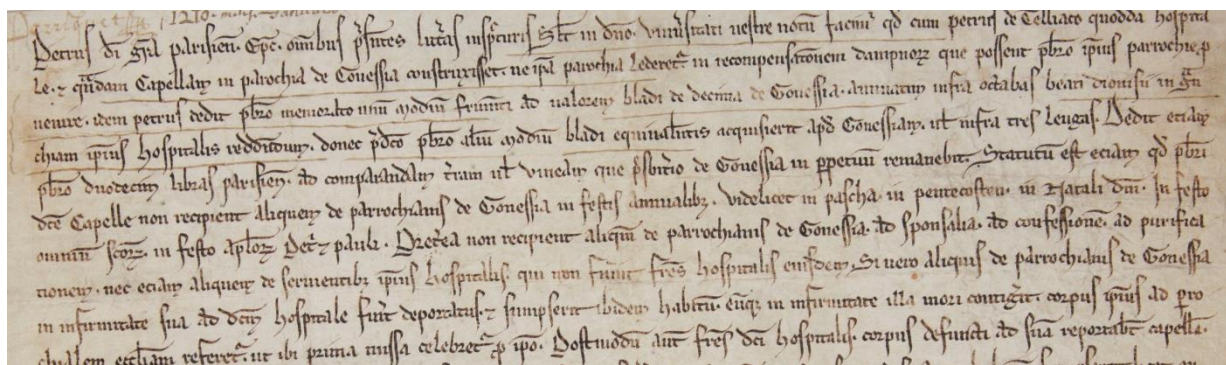 1210.
Petrus di gra parisien. Epc. omibus psentes litteras inspecturis Salt in dno. Vniuersitati uestre notu facim qd cum petrus de Telliaco quodda hospita
le. et quadam Capellam in parochia de Gonessia construxisset. ne ipa parochia lederet in recompensatione dampnorz que possent pbro ipius parrochie p
uenire. idem petrus dedit pbro memorato unu modiu frumti ad ualorem bladi de decima de Gonessia. annuatim infra octabas beati dionisii in gn
chiam ipius hospitalis redditoum. donec pdco pbro aliu modiu bladi equiualentis acquisierit apd Gonessiam. ul infra tres leugas. Dedit etiam
pbro duodecim libras parisien. ad comparandam terram ul uineam que psbrio de Gonessia in ppetuu remanebit. Statutu est eciam qd pbri
dce Capelle non recipient aliquem de parrochianis de Gonessia in festis annualibz. videlicet in pascha. in pentecosten. in Natali dni. In festo
omniu scorz. in festo aplorz Petri et pauli. Preterea non recipient aliquem de parrochianis de Gonessia. ad sponsalia. ad confessione. ad purifica
tionem. nec etiam aliquem de seruientibz ipius hospitalis. qui non fuint fres hospitalis eiusdem. Si uero aliquis de parrochianis de Gonessia
in infirmitate sua ad dcm hospitale fuit deportatus. et sumpserit ibidem habitu. eumqz in infirmitate illa mori contigit. corpus ipius ad pro
chialem eccliam referet. ut ibi prima missa celebret p ipo. Postmodu aut fres dci hospitalis. corpus defuncti ad sua reportabt capella.